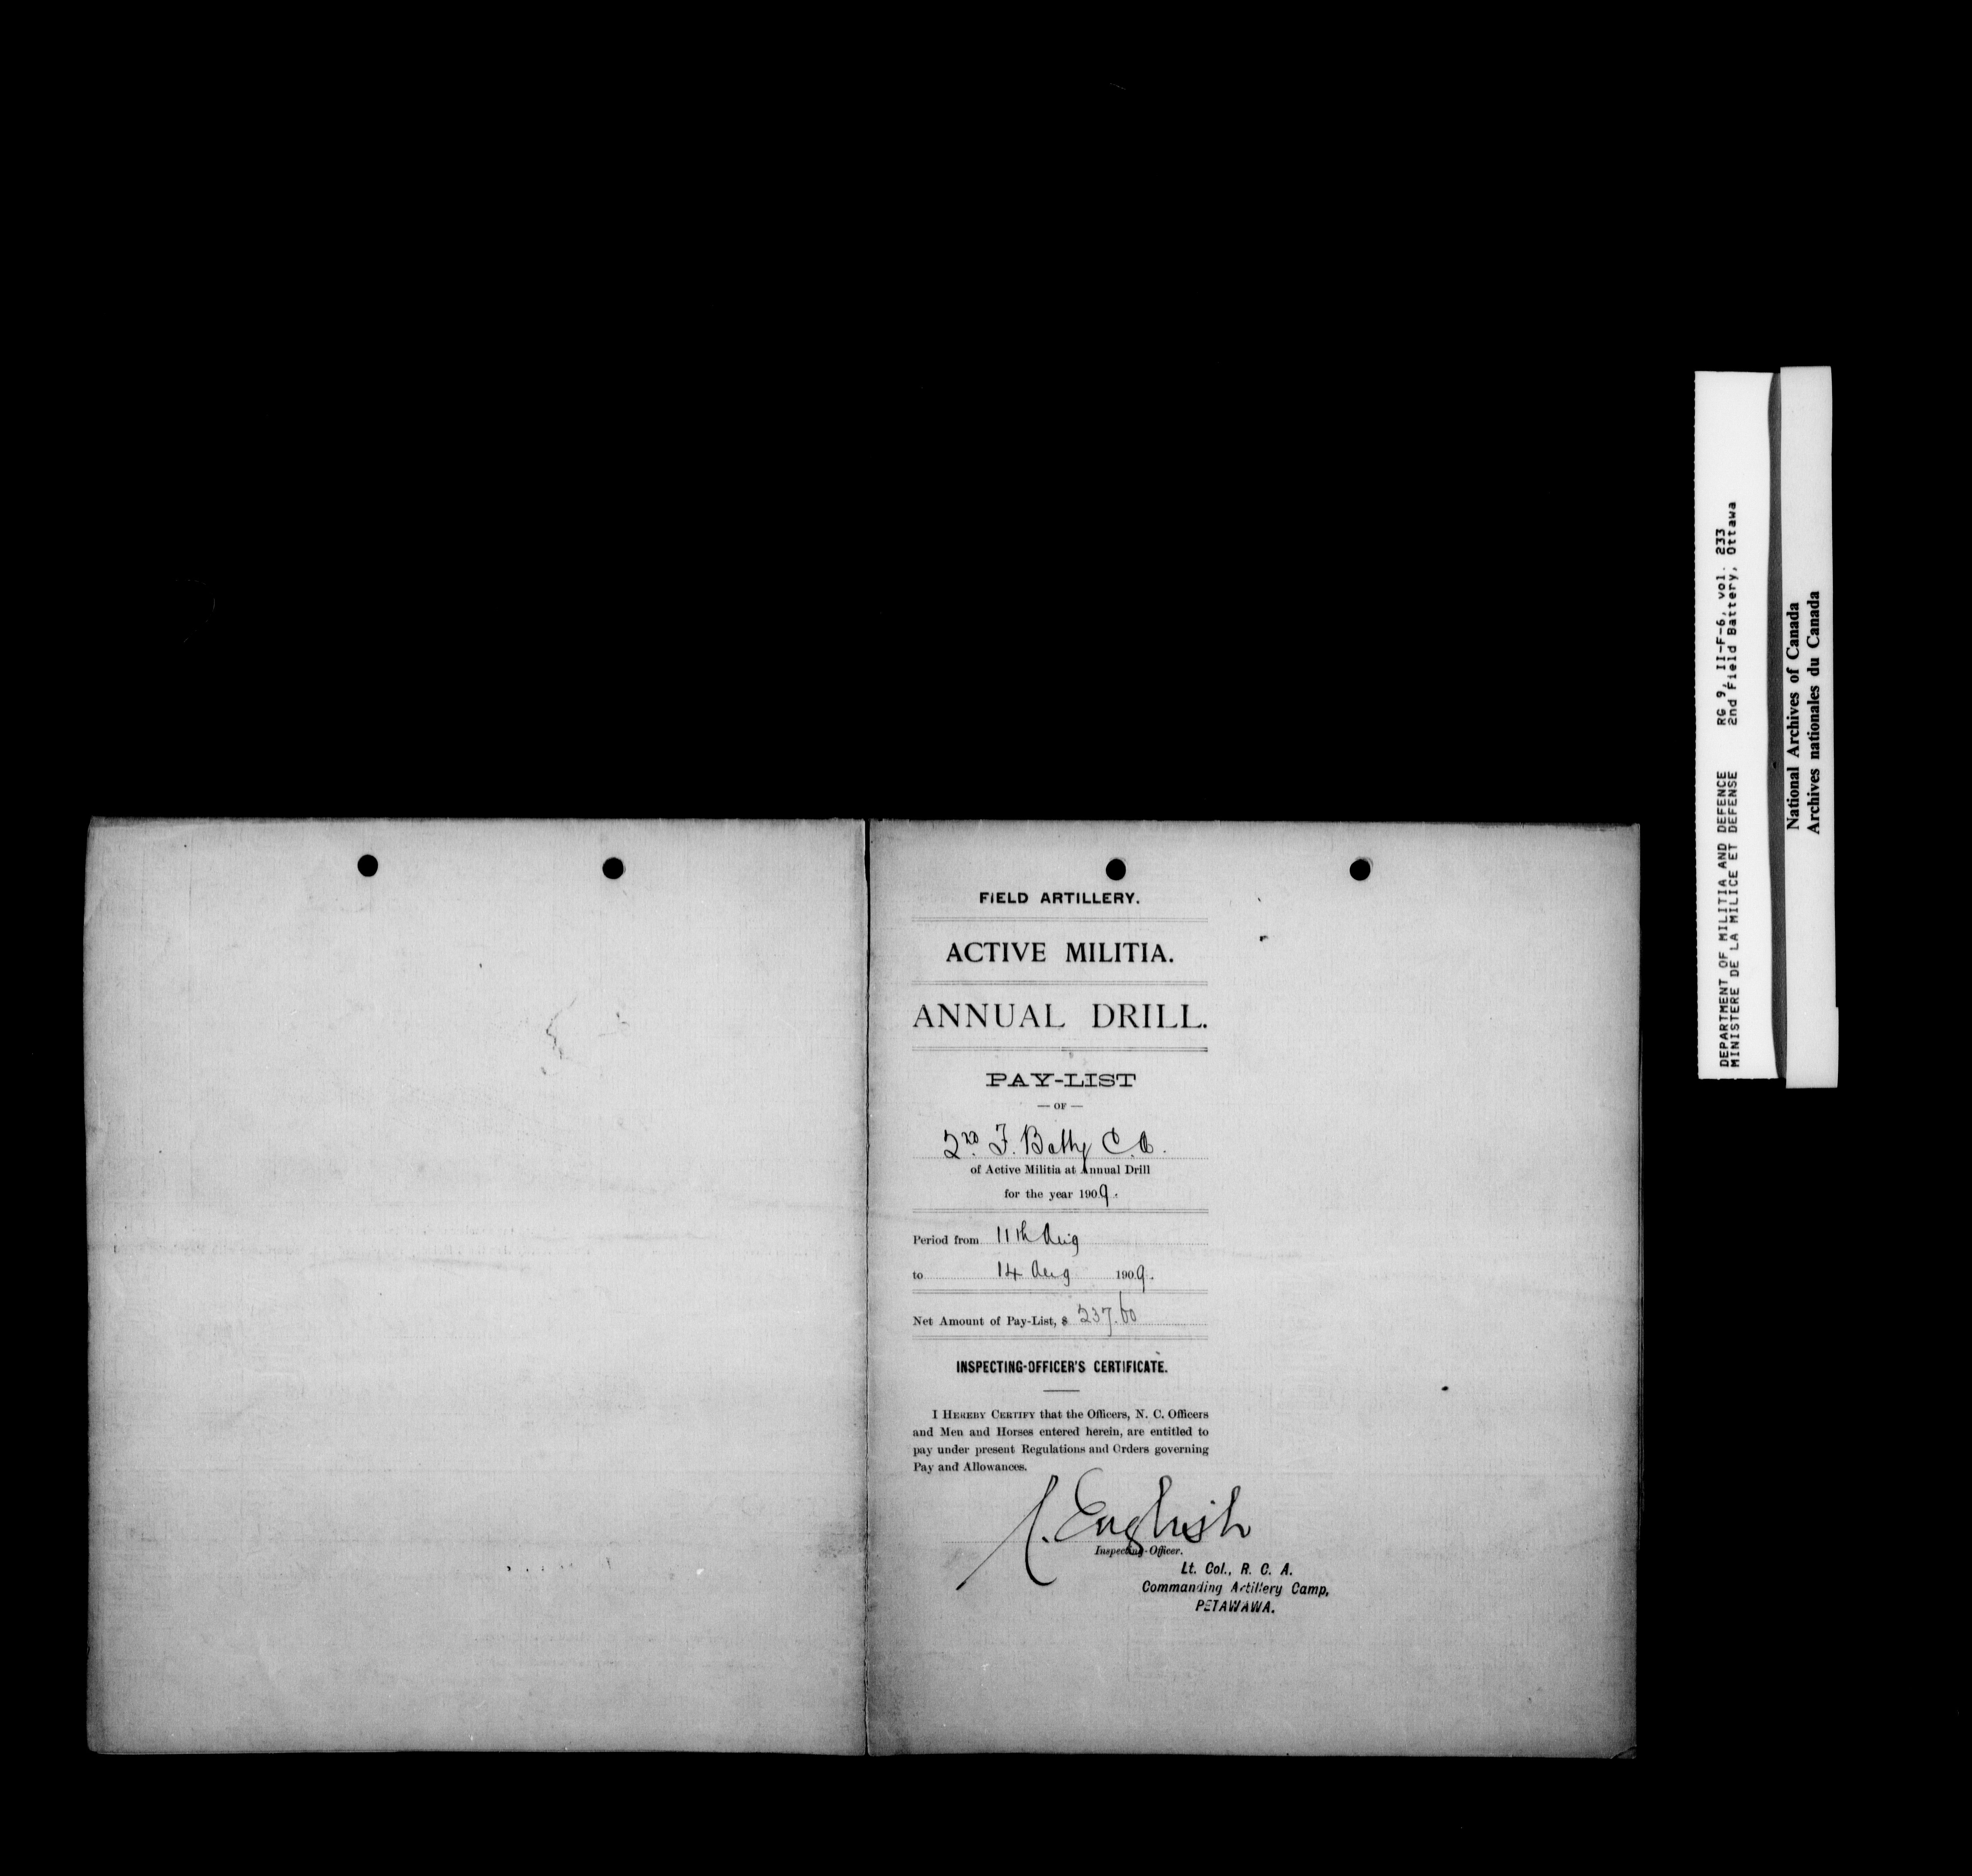 FIELD ARTILLERY.
ACTIVE MILITIA.
ANNUAL DRILL.
PAY-LIST
— OF —
2nd F. Batty C.A.
of Active Militia at Annual Drill
for the year 1909.
Period from 11th Aug
to 14 Aug 1909.
Net Amount of Pay-List, $ 237.60
INSPECTING-OFFICER'S CERTIFICATE.
I HEREBY CERTIFY that the Officers, N. C. Officers
and Men and Horses entered herein, are entitled to
pay under present Regulations and Orders governing
Pay and Allowances.
English
Inspecting-Officer.
Lt. Col., R. C. A.
Commanding Artillery Camp,
PETAWAWA.
DEPARTMENT OF MILITIA AND DEFENCE RG 9, II-F-6, vol. 233
MINISTERE DE LA MILICE ET DEFENSE 2nd Field Battery, Ottawa
National Archives of Canada
Archives nationales du Canada